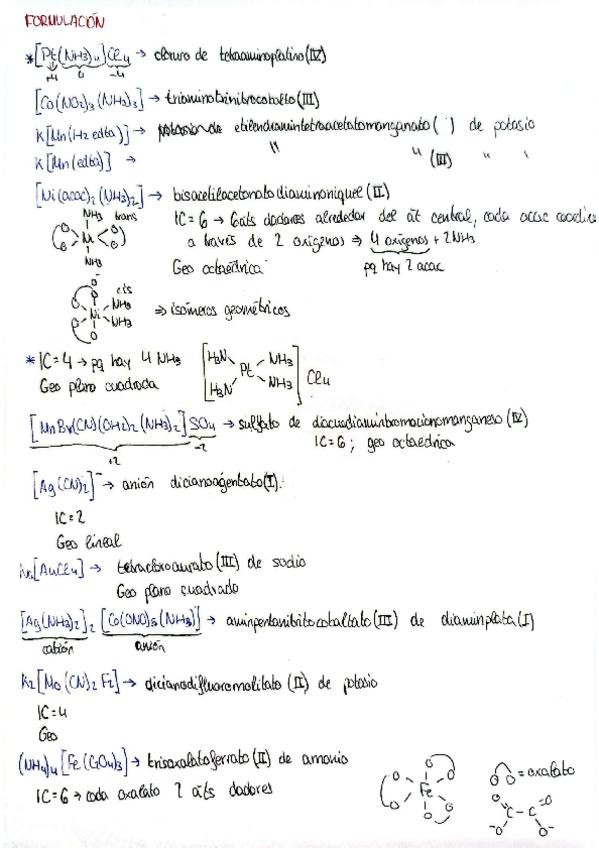 FORMULACIÓN
*[Pt(NH3)4]Cl4 → cloruro de tetraaminoplatino(IV)
+4 0 -4
[Co(NO2)3(NH3)3] → triaminotrinitrocobalto(III)
K[Mn(H2edta)] → potasion de etilendiamintetraacetatomanganato( ) de potasio
K[Mn(edta)] → " " (III) " "
[Ni(acac)2(NH3)2] → bisacetilacetonatodiaminoniquel(II)
NH3 trans
Ni
NH3
IC=6 → 6 ats dadores alrededor del át central, cada acac
a través de 2 oxígenos ⇒ 4 oxígenos + 2NH3
Geo octaédrica pq hay 2 acac
cis
O Ni NH3
NH3
⇒ isómeros geométricos
* IC=4 → pq hay 4 NH3
Geo plano cuadrada
[H3N Pt NH3
H3N NH3] Cl4
[MnBr(CN)(OH2)2(NH3)2]SO4 → sulfato de diacuodiaminbromocianomanganeso(IV)
+2 -2
IC=6; geo octaedrica
[Ag(CN)2]⁻ → anión dicianoargentato(I).
IC=2
Geo lineal
Na[AuCl4] → tetracloroaurato(III) de sodio
Geo plano cuadrado
[Ag(NH3)2]2 [Co(ONO)5(NH3)] → aminpentanitritocobaltato(III) de diaminplata(I)
catión anión
K2[Mo(CN)2F2] → dicianodifluoromolitato(II) de potasio
IC=4
Geo
(NH4)4[Fe(C2O4)3] → trisoxalatoferrato(II) de amonio
IC=6 → cada oxalato 2 áts dadores
Fe
O O = oxalato
O C - C =O
⁻O O⁻